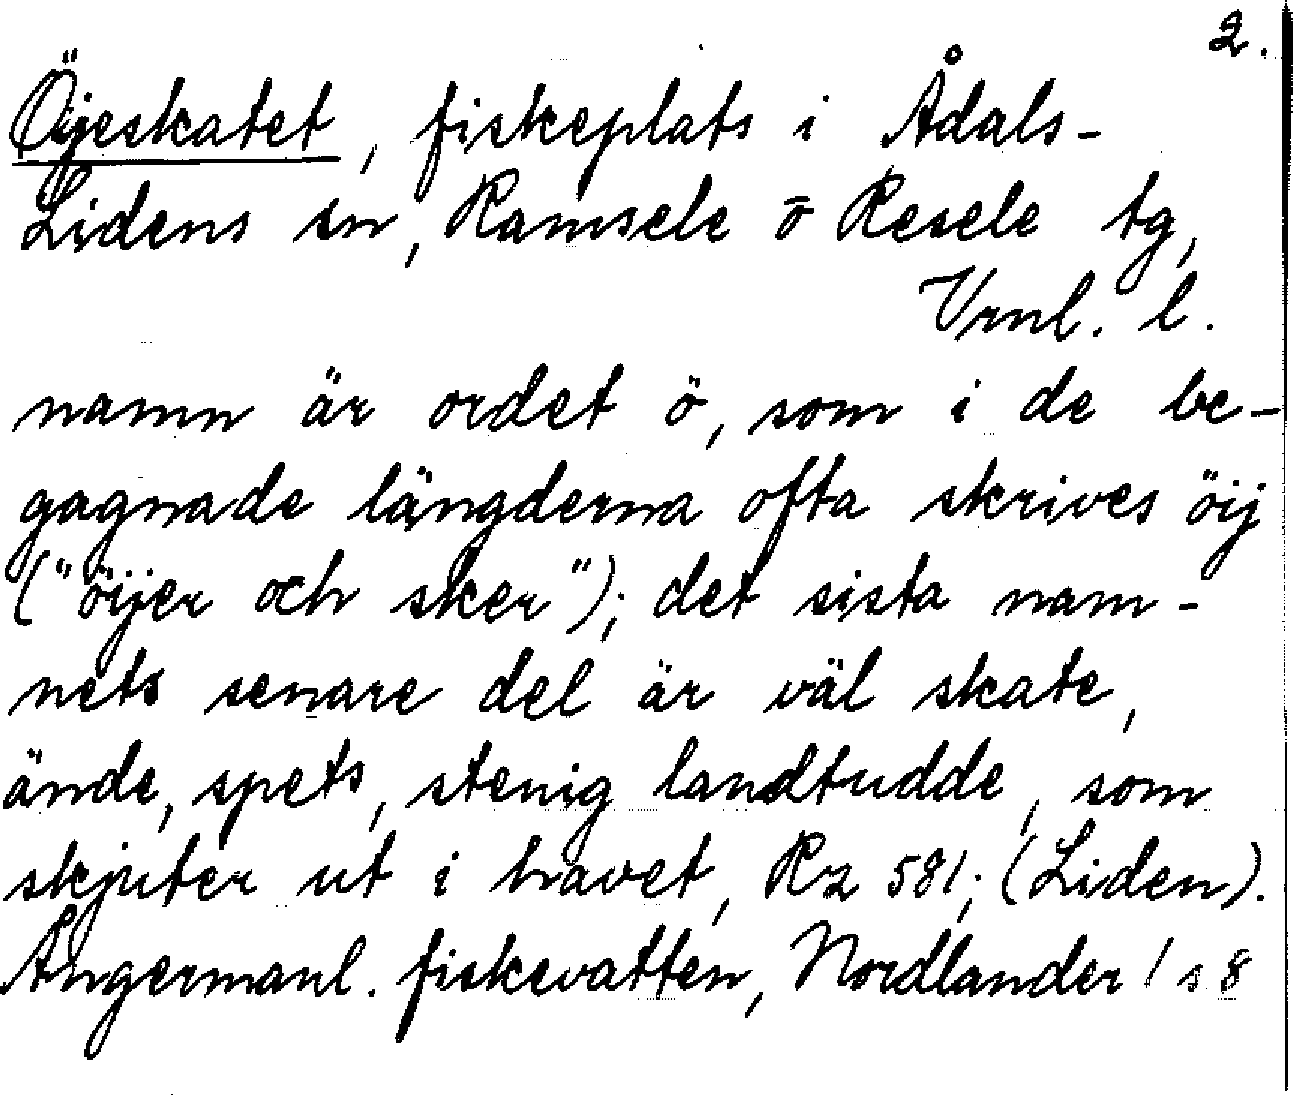 2.
Öijeskatet, fiskeplats i Ådals-
Lidens sn, Ramsele o Resele tg,
Vrnl. l.
namn är ordet ö, som i de be-
gagnade längderna ofta skrives öij
("öijer och sker"); det sista nam-
nets senare del är väl skate,
ände, spets, stenig landtudde, som
skjuter ut i havet, Rz 581; (Liden).
Ångermanl. fiskevatten, Nordlander 1 s 8